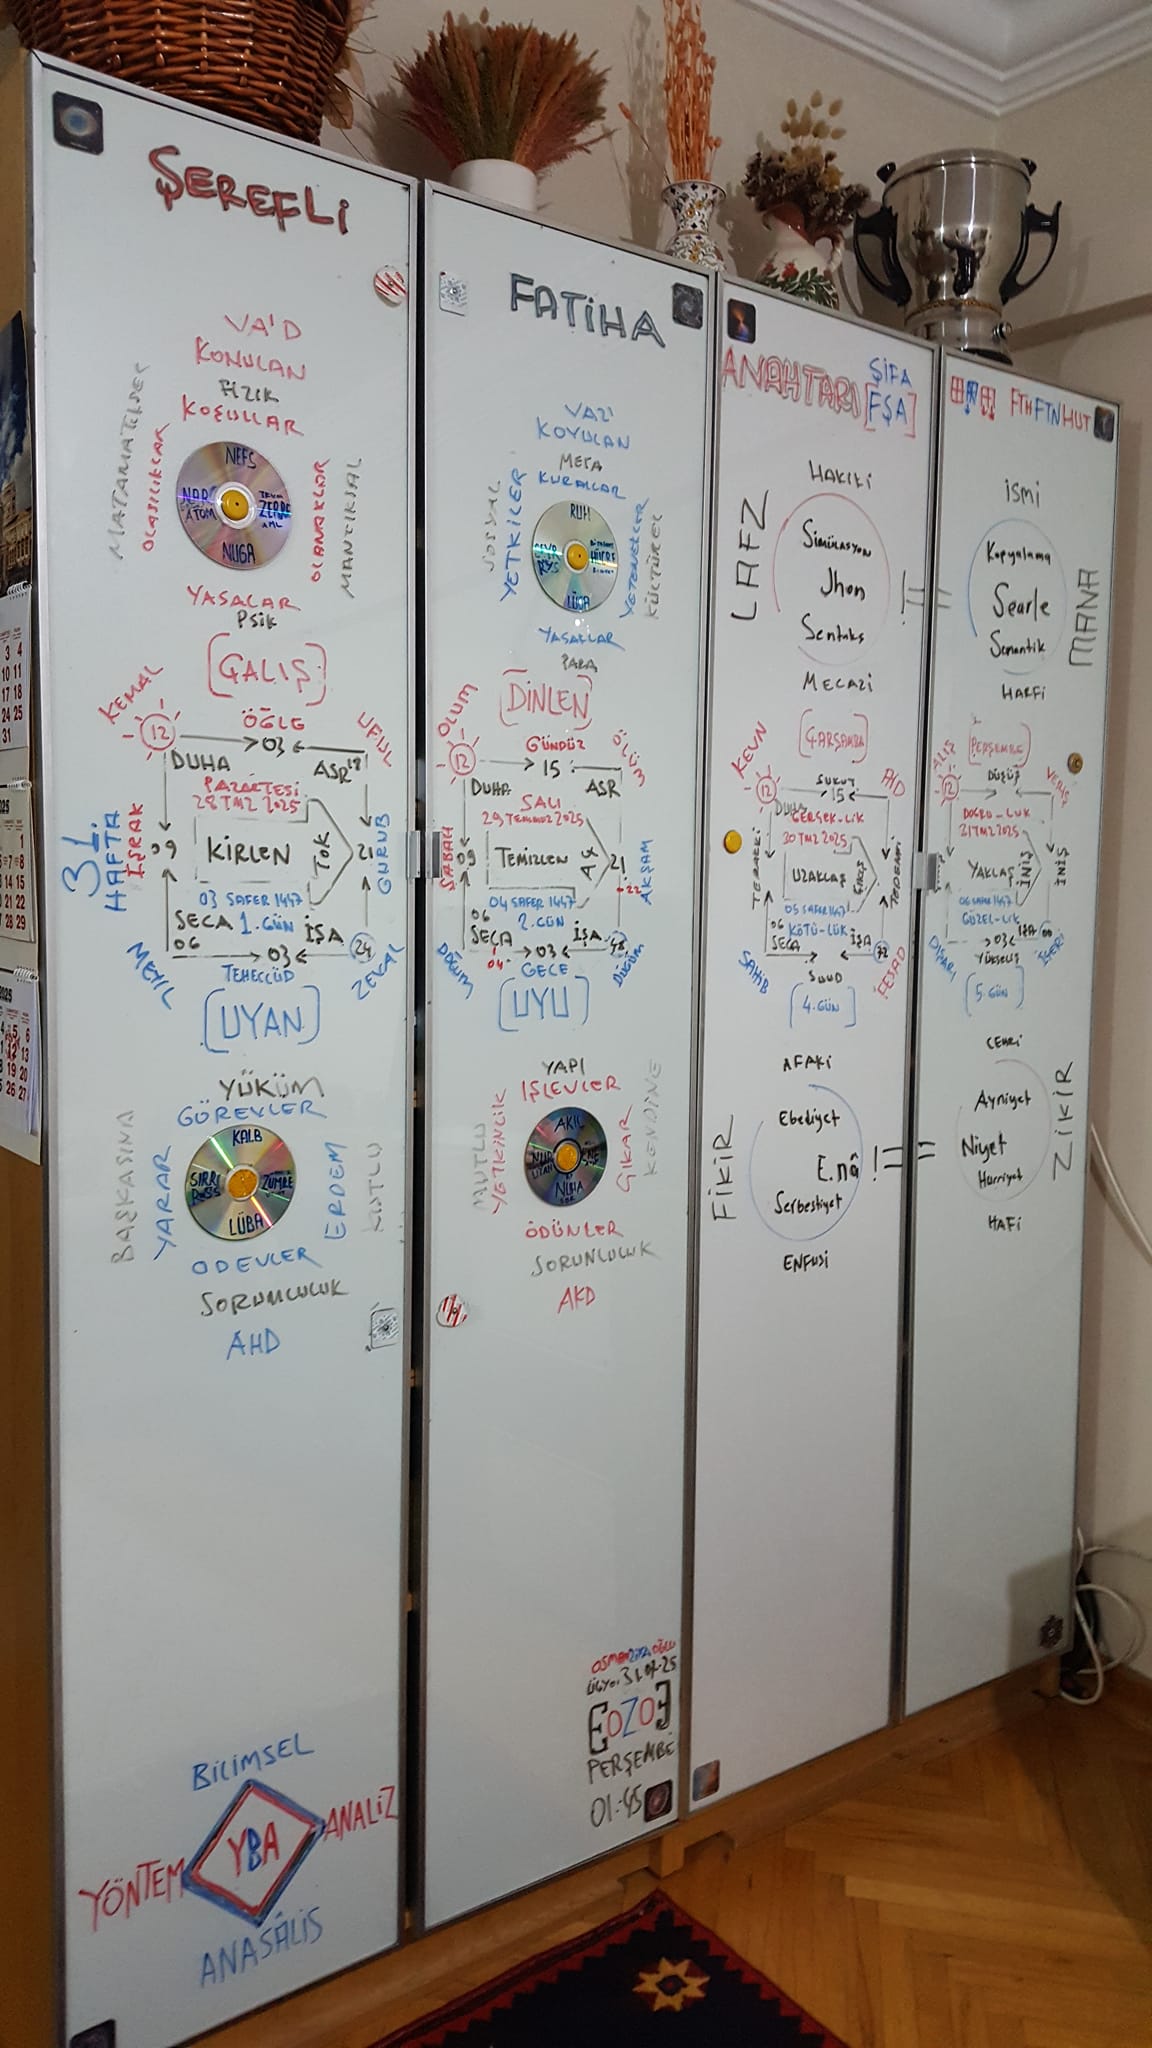 ŞEREFLİ
VA'D
KONULAN
FİZİK
KOŞULLAR
MATAMATİKSEL
OLASILIKLAR
OLANAKLAR
MANTIKSAL
NEFS
ATOM
ZERRE
NUGA
YASALAR
PSİK
[ÇALIŞ]
KEMAL
12
ÖĞLE
03
UFUL
DUHA
ASR
PAZARTESİ
28 TMZ 2025
31.
HAFTA
İŞRAK
09
KİRLEN
TOK
21
GURUB
03 SAFER 1447
SECA
1. GÜN
İŞA
06
03
24
MEYİL
TEHECCÜD
ZEVAL
[UYAN]
YÜKÜM
GÖREVLER
BAŞKASINA
YARAR
ERDEM
KUTLU
KALB
SIRR
ZÜMRE
LÜBA
ÖDEVLER
SORUMLULUK
AHD
BİLİMSEL
YÖNTEM
YBA
ANALİZ
ANASÂLİS
FATİHA
VAZ'
KOYULAN
META
KURALLAR
SOSYAL
YETKİLER
YETENEKLER
KÜLTÜREL
RUH
HÜCRE
LÜGA
YASAKLAR
PARA
[DİNLEN]
OLUM
12
GÜNDÜZ
15
ÖLÜM
DUHA
ASR
SALI
29 TEMMUZ 2025
SABAH
09
TEMİZLEN
AÇ
21
AKŞAM
22
04 SAFER 1447
06
SECA
2. GÜN
İŞA
04
03
48
DOĞUM
GECE
DÜĞÜM
[UYU]
YAPI
İŞLEVLER
MUTLU
YETKİNLİK
ÇIKAR
KENDİNE
AKIL
NUHA
ÖDÜNLER
SORUNLULUK
AKD
31.07.25
[EOZO3]
PERŞEMBE
01:45
ANAHTARI
ŞİFA
[FŞA]
HAKİKİ
LAFZ
Simülasyon
Jhon
Sentaks
!
MECAZİ
[ÇARŞAMBA]
KEVN
12
SUKUT
15
AHD
DUHA
GERÇEK-LİK
30 TMZ 2025
TEREKKİ
UZAKLAŞ
TEDENNİ
05 SAFER 1447
06
KÖTÜ-LÜK
SECA
İŞA
72
SAHİB
SUUD
FESAD
[4. GÜN]
AFAKİ
FİKİR
Ebediyet
E.nâ
Serbestiyet
!
ENFUSİ
FTHFTNHUT
İSMİ
Kopyalama
Searle
Semantik
MANA
HARFİ
[PERŞEMBE]
ALIŞ
12
DÜŞÜŞ
VERİŞ
DOĞRU-LUK
21 TMZ 2025
YAKLAŞ
İNİŞ
İNİŞ
06 SAFER 1447
GÜZEL-LİK
İŞA
00
03
DIŞARI
YÜKSELİŞ
İÇERİ
[5. GÜN]
CEHRİ
Ayniyet
Niyet
Hürriyet
ZİKİR
HAFİ